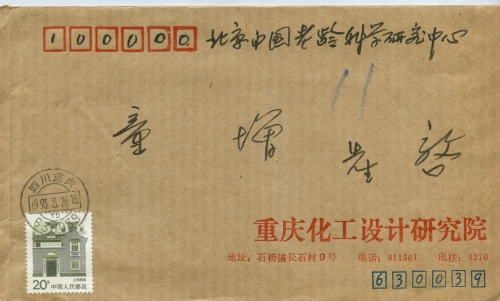 100000 北京中国老龄科学研究中心
童增先生 启
四川重庆
1993.3.26.18
重庆化工设计研究院
地址：石桥铺长石村9号 电话：811561 电挂：4270
630039
20分 中国人民邮政
上海民居